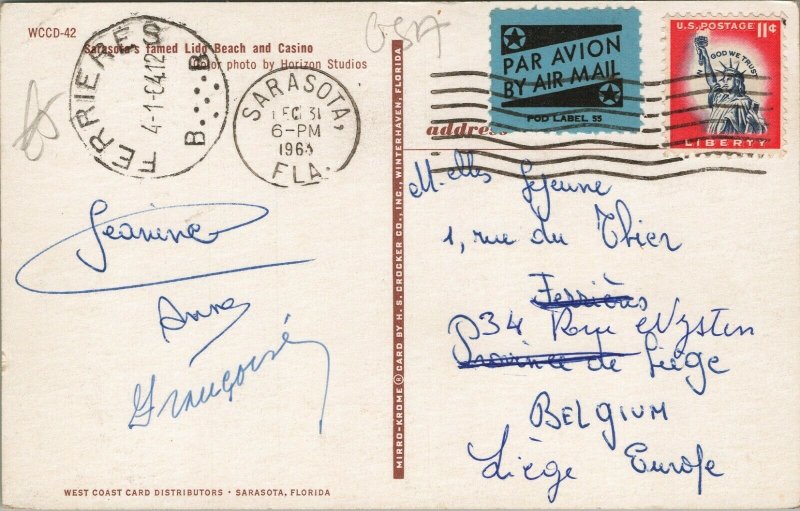 WCCD-42
Sarasota's famed Lido Beach and Casino
Color photo by Horizon Studios
FERRIERES
4-1-64.12
B B
SARASOTA,
DEC 31
6-PM
FLA.
USA
PAR AVION
BY AIR MAIL
POD LABEL 55
U.S. POSTAGE 11¢
IN GOD WE TRUST
LIBERTY
address
Jeanine
Anne
Françoise
MIRRO-KROME® CARD BY H. S. CROCKER CO., INC., WINTERHAVEN, FLORIDA
M.elles Lejeune
1, rue du Thier
Ferrières
34 Rue Nysten
Province de Liège
BELGIUM
Liège Europe
WEST COAST CARD DISTRIBUTORS • SARASOTA, FLORIDA